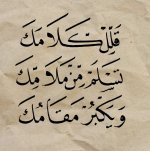 قَلِّل كَلَامَكَ
لِتَسْلَمَ مِن مَّلَامِكَ
وَيَكْبُرُ مَقَامُكَ